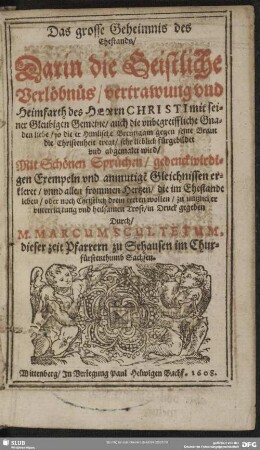 Das grosse Geheimnis des
Ehestands/
Darin die Geistliche
Verlöbnüs/ vertrawung vnd
Heimfarth des HERRN CHRISTI mit sei-
ner Gleubigen Gemeine/ auch die vnbegreiffliche Gna-
den liebe/ so die er Himlische Breutgam gegen seine Braut
die Christenheit treat/ sehr lieblich fürgebildet
vnd abgemalet wird/
Mit Schönen Sprüchen/ gedenckwirdi-
gen Exempeln vnd anmutigē Gleichnissen er-
kleret/ vnnd allen frommen Hertzen/ die im Ehestande
leben/ oder noch Christlich drein treten wollen/ zu nützlicher
vnterrichtung vnd heilsamen Trost/ in Druck gegeben
Durch/
M. MARCUM SCULTETUM.
dieser zeit Pfarrern zu Sehausen im Chur-
fürstenthumb Sachsen.
Wittenberg/ In Verlegung Paul Helwigen Buchf. 1608.
SLUB
DFG